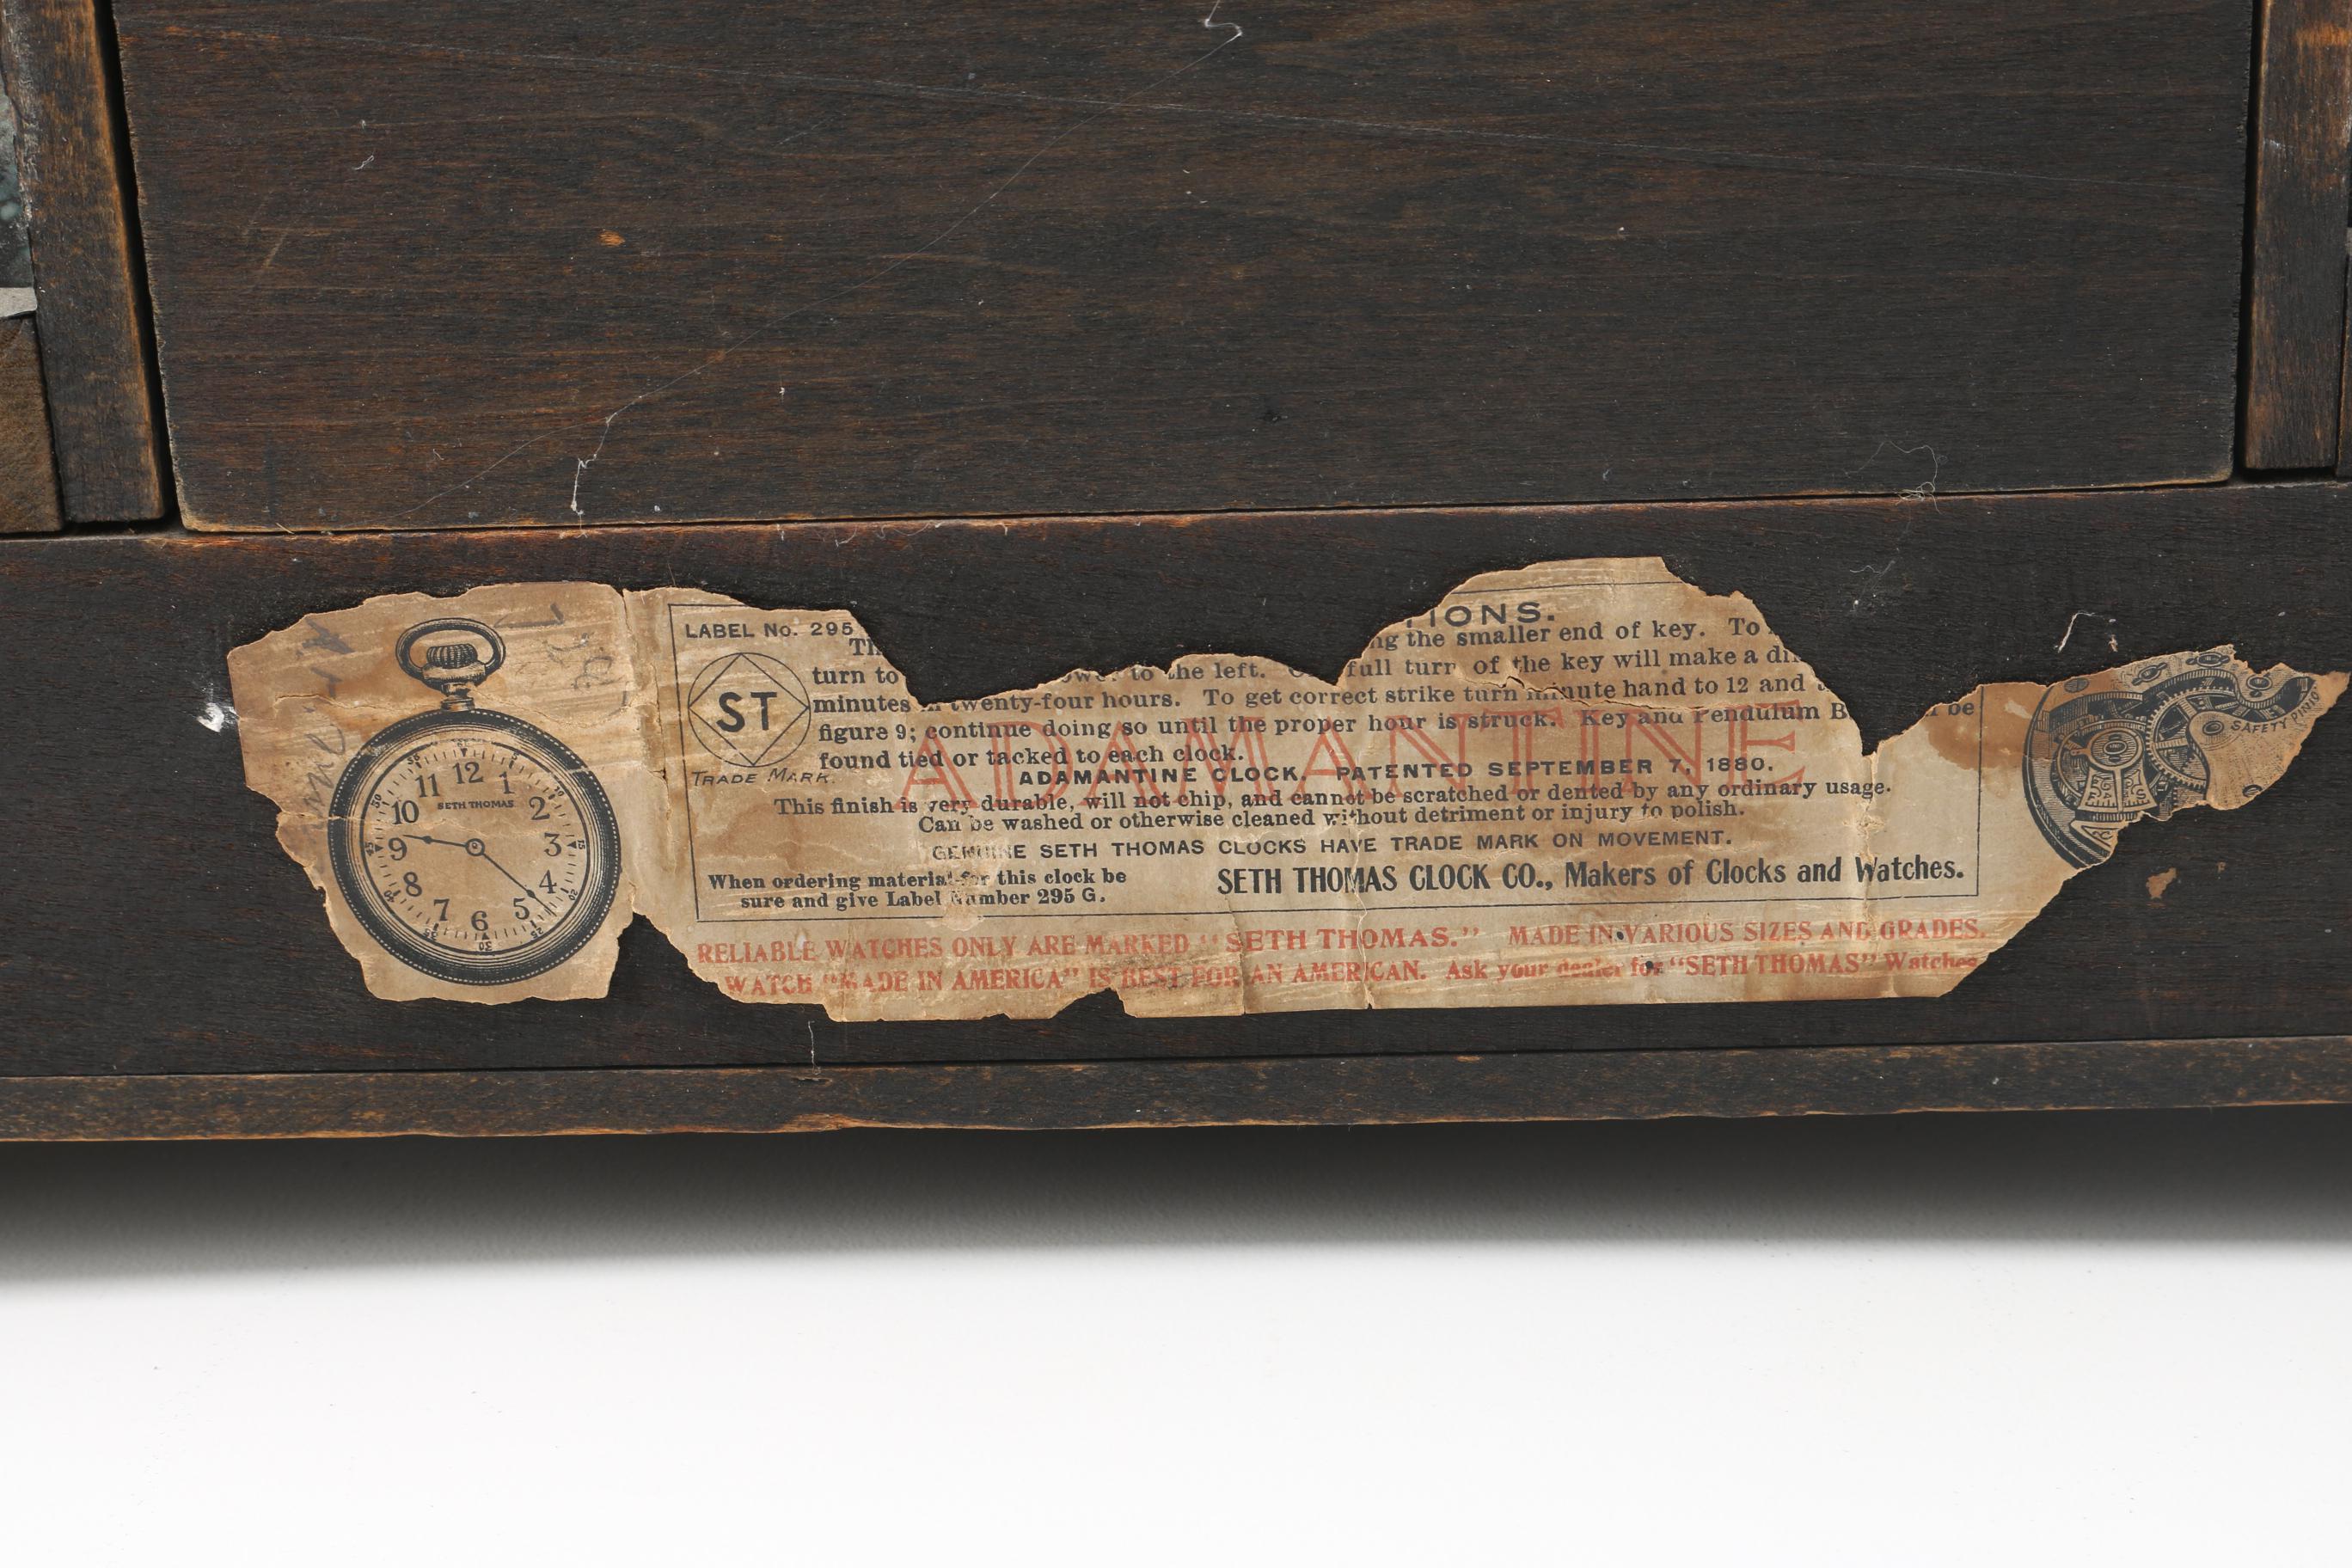 LABEL No. 295
IONS.
ng the smaller end of key. To
turn to to the left. full turn of the key will make a
minutes twenty-four hours. To get correct strike turn minute hand to 12 and
figure 9; continue doing so until the proper hour is struck. Key and Pendulum be
found tied or tacked to each clock.
ST
TRADE MARK.
ADAMANTINE
ADAMANTINE CLOCK. PATENTED SEPTEMBER 7, 1880.
This finish is very durable, will not chip, and cannot be scratched or dented by any ordinary usage.
Can be washed or otherwise cleaned without detriment or injury to polish.
GENUINE SETH THOMAS CLOCKS HAVE TRADE MARK ON MOVEMENT.
When ordering material for this clock be
sure and give Label Number 295 G.
SETH THOMAS CLOCK CO., Makers of Clocks and Watches.
RELIABLE WATCHES ONLY ARE MARKED "SETH THOMAS." MADE IN VARIOUS SIZES AND GRADES.
WATCH "MADE IN AMERICA" IS BEST FOR AN AMERICAN. Ask your dealer for "SETH THOMAS" Watches
SETH THOMAS
12 1 2 3 4 5 6 7 8 9 10 11
SAFETY PINIO